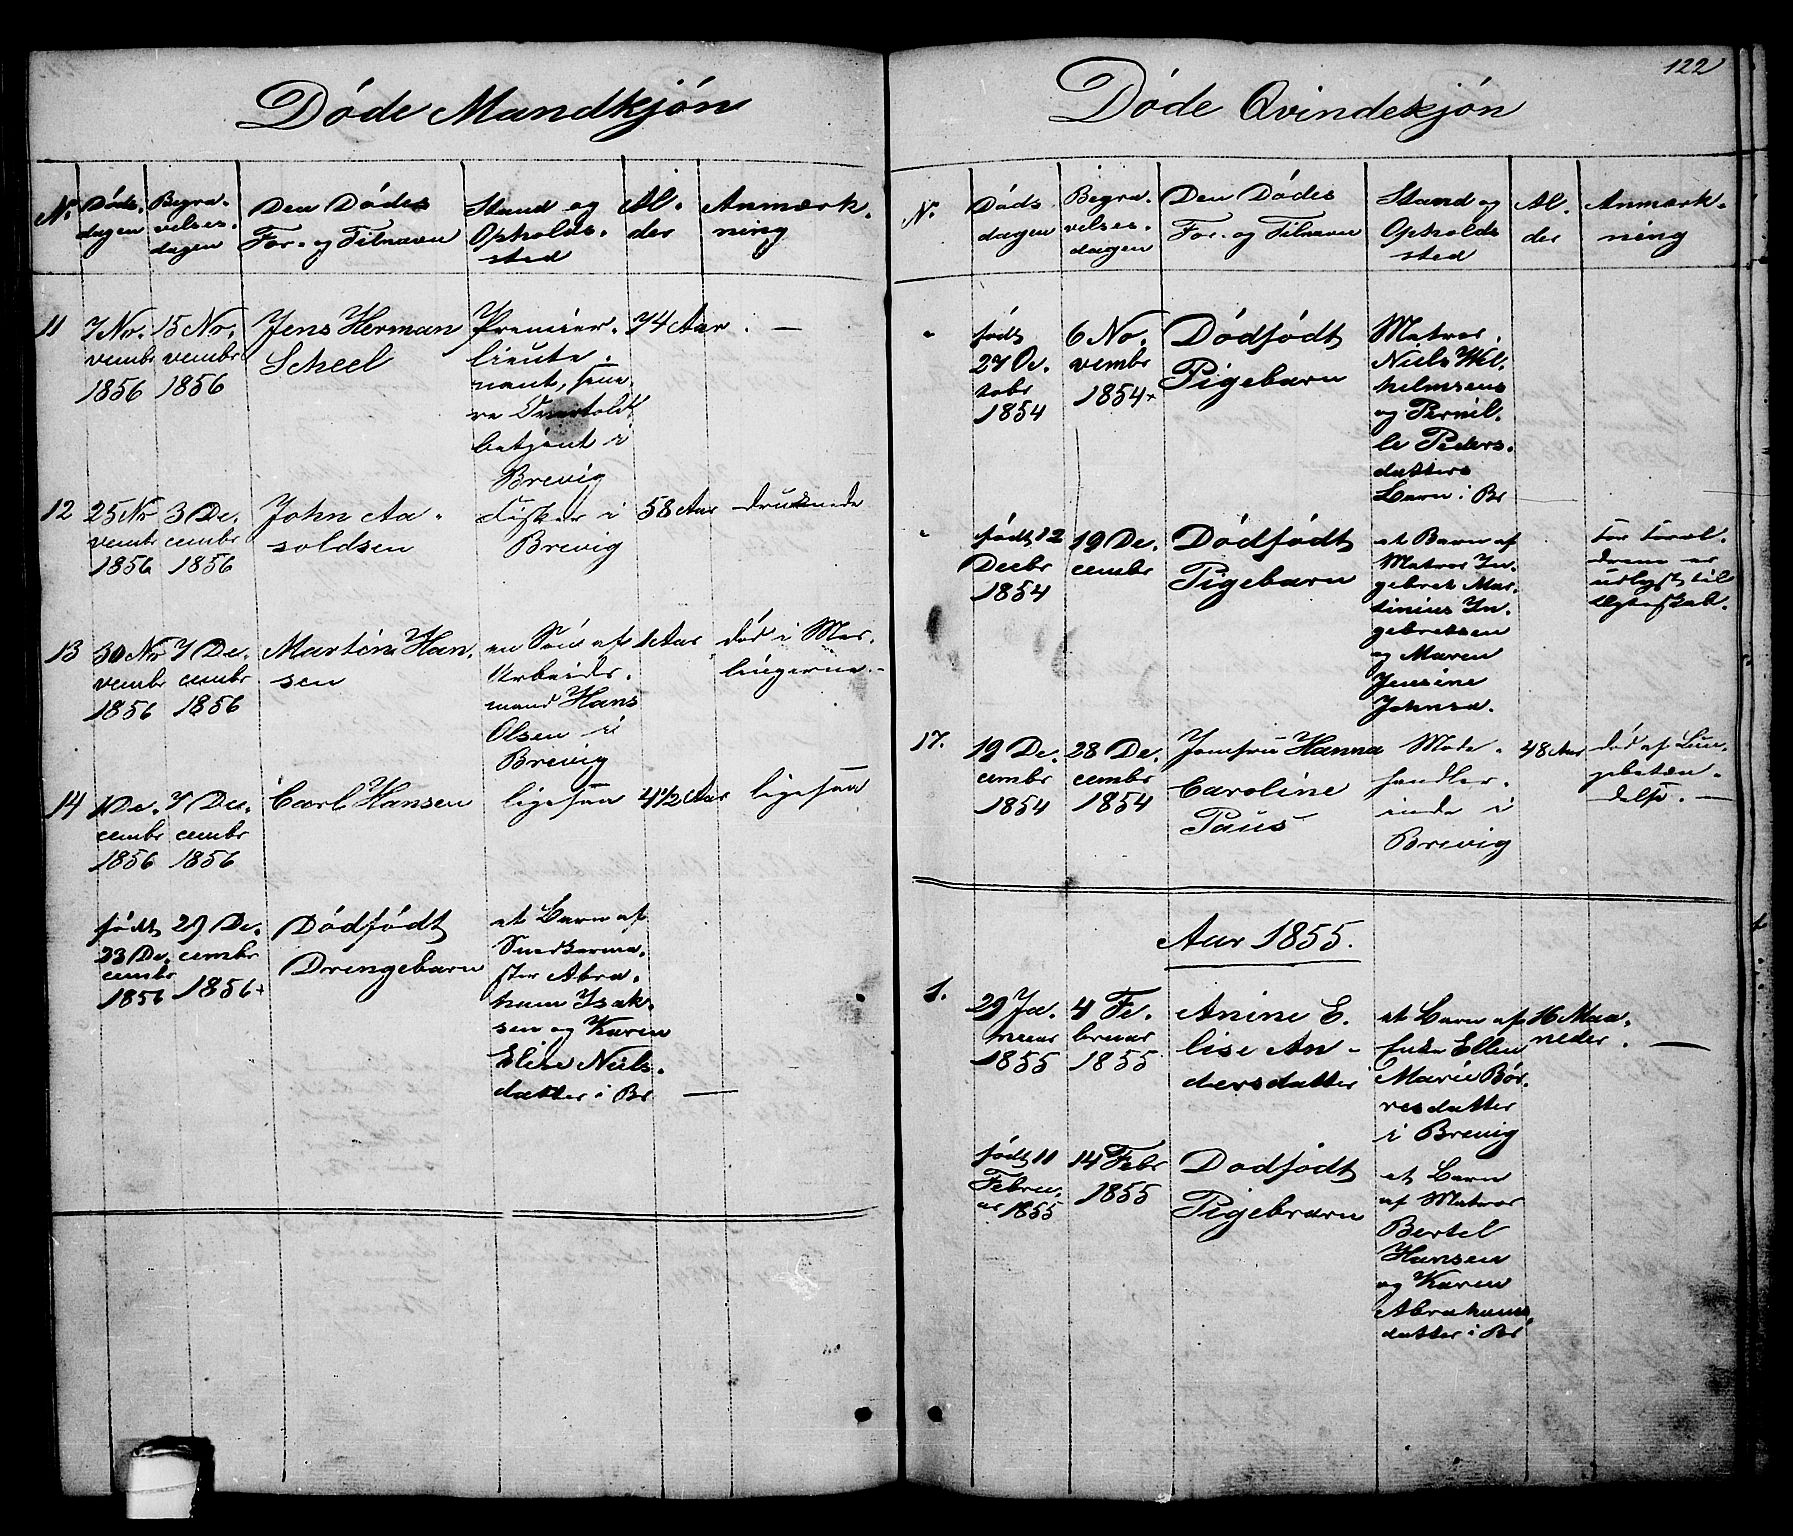 Døde Mandkjøn
N. Døds-
dagen
Begra-
velses-
dagen
Den Dødes
For- og Tilnavn
Stand og
Opholds-
sted
Al-
der
Anmærk-
ning
11
7 No-
vembr
1856
15 No-
vembr
1856
Jens Herman
Scheel
Premier-
lieute-
nant, sene-
re Overtold-
betjent i
Brevig
74 Aar
. —
12
25 No
vembr
1856
3 De-
cembr
1856
John Aa-
soldsen
Fisker i
Brevig
58 Aar
druknede
13
30 No
vembr
1856
7 De-
cembr
1856
Martin Han-
sen
en Søn af
Arbeids-
mand Hans
Olsen i
Brevig
1 Aar
død i Mes-
lingerne. -
14
1 De-
cembr
1856
7 De-
cembr
1856
Carl Hansen
ligesaa
4 1/2 Aar
ligesaa
født
23 De-
cembr
1856
29 De-
cembr
1856+
Dødfødt
Drengebarn
et Barn af
Snedkerme-
ster Abra-
ham Isak-
sen og Karen
Elise Niels-
datter i Br
—
122
Døde Qvindekjøn
N.
Døds
dagen
Begra-
velses-
dagen
Den Dødes
For- og Tilnavn
Stand og
Opholds
sted
Al-
der
Anmærk-
ning
-
født
27 Oc-
tobr
1854
6 No-
vembr
1854+
Dødfødt
Pigebarn
Matros
Niels Wil-
helmsens
og Pernil-
le Peders-
datters
Barn i Br
-
født 12
Decbr
1854
19 De-
cembr
Dødfødt
Pigebarn
et Barn af
Matros In-
gebret Mar-
tinius In-
gebretsen
og Maren
Jensine
Johnsd.
For Foræl-
drene er
udlyst til
Ægteskab.
17.
19 De-
cembr
1854
28 De-
cembr
1854
Jomfru Hanna
Caroline
Paus
Mode-
handler-
inde i
Brevig
48 Aar
død af Lun-
gebetæn-
delse. —
Aar 1855.
1.
29 Ja-
nuar
1855
4 Fe-
bruar
1855
Anine E-
lise An-
dersdatter
et Barn af
Enke Ellen
Marie Bør-
resdatter
i Brevig
16 Maa-
neder.
—
født 11
Febru-
ar 1855
14 Febr
1855
Dødfødt
Pigebarn
et Barn
af Matros
Bertel
Hansen
og Karen
Abrahams-
datter i Br